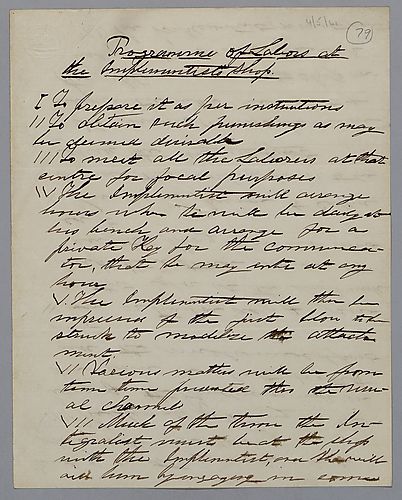 4/5/61
79
Programme of Labors at
the Implementists Shop.
I To prepare it as per instructions
II To obtain such furnishings as may
be deemed desirable
III To meet all the Laborers at that
centre for focal purposes
IV The Implementist will arrange
hours when he will be daily at
his bench and arrange for a
private Key for the communca-
tor, that he may enter at any
hour
V. The Implementist will then be
impressed of the first blow to be
struck to modelize the attach
ment,
VI Various matters will be from
time time presented thro the usu-
al Channels
VII Much of the time the In-
tegralist must be at the shop
with the Implementist, and she will
aid him by engaging in some